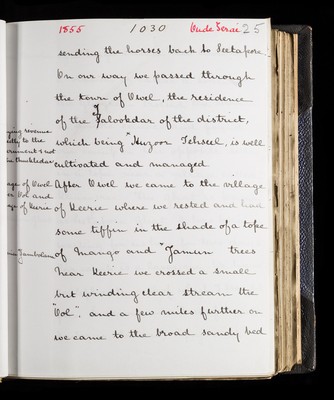 1855 1030 Oude Serai 25
sending the horses back to Seetapore.
On our way we passed through
the town of Owel, the residence
of the Talookdar of the district,
which being "Huzoor Tehseel, is well
cultivated and managed
After Owel we came to the village
of Keerie where we rested and had
some tiffin in the shade of a tope
of Mango and "Jamun trees
Near Keerie we crossed a small
but winding clear stream the
"Ool". and a few miles further on
we came to the broad sandy bed
paying revenue
to the
not
Thalukdar
of Owel
Ool and
of Keerie
Jambolan